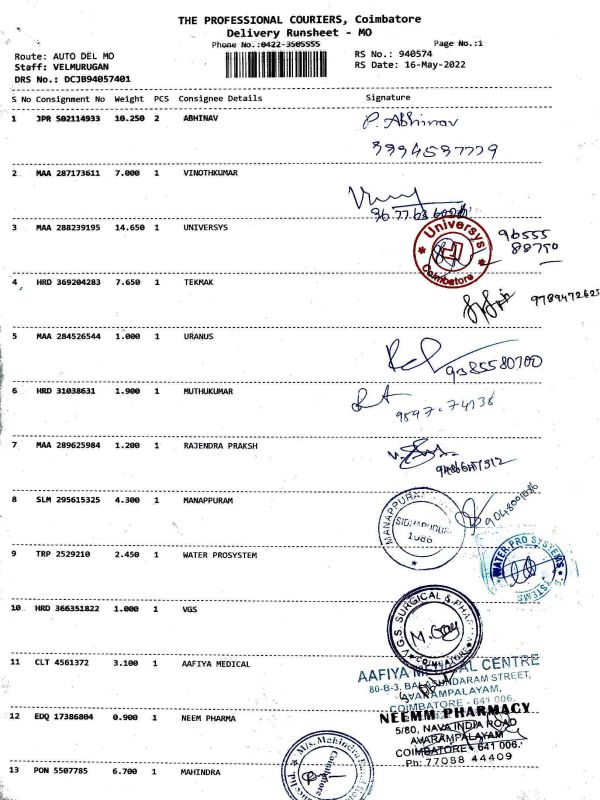 THE PROFESSIONAL COURIERS, Coimbatore
Delivery Runsheet - MO
Phone No.:0422-3505555
Page No.:1
Route: AUTO DEL MO
RS No.: 940574
Staff: VELMURUGAN
RS Date: 16-May-2022
DRS No.: DCJB94057401
S No Consignment No Weight PCS Consignee Details Signature
1 JPR 502114933 10.250 2 ABHINAV P. Abhinav
2 MAA 287173611 7.000 1 VINOTHKUMAR
3 MAA 288239195 14.650 1 UNIVERSYS
Universys
Coimbatore
96555
88750
4 HRD 369204283 7.650 1 TEKMAK
9789472625
5 MAA 284526544 1.000 1 URANUS
9385580700
6 HRD 31038631 1.900 1 MUTHUKUMAR
7 MAA 289625984 1.200 1 RAJENDRA PRAKSH
8 SLM 295615325 4.300 1 MANAPPURAM
MANAPPURAM
SIDHAPUDUR
1086
9 TRP 2529210 2.450 1 WATER PROSYSTEM
WATER PRO SYSTEMS
10 HRD 366351822 1.000 1 VGS
V.G.S. SURGICAL & PHAR
COIMBATORE
11 CLT 4561372 3.100 1 AAFIYA MEDICAL
AAFIYA MEDICAL CENTRE
80-B-3, BALASUNDARAM STREET,
AVARAMPALAYAM,
COIMBATORE - 641 006.
12 EDQ 17386804 0.900 1 NEEM PHARMA
NEEMM PHARMACY
5/80, NAVA INDIA ROAD
AVARAMPALAYAM
COIMBATORE - 641 006.
Ph: 77088 44409
13 PON 5507785 6.700 1 MAHINDRA
M/s. Mahindra
Coimbatore